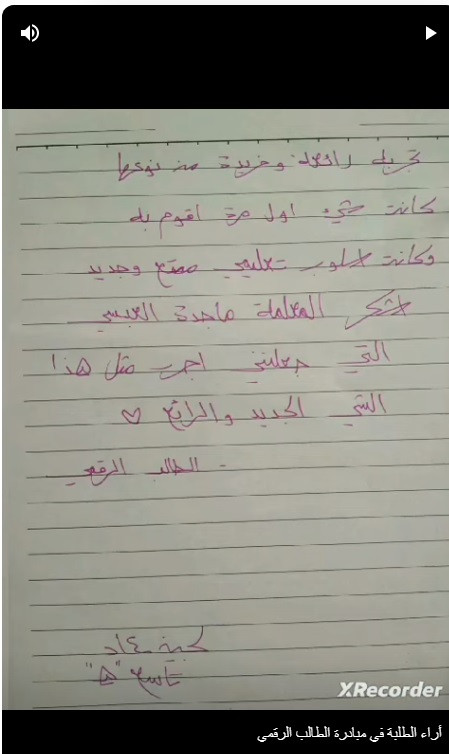 تجربة رائعة وفريدة من نوعها
كانت شيء اول مرة اقوم به
وكانت اسلوب تعليمي ممتع وجديد
اشكر المعلمة ماجدة العبسي
التي جعلتني اجرب مثل هذا
الشي الجديد والرائع ♡
- الطالب الرقمي
عماد
تاسع "هـ"
XRecorder
أراء الطلبة في مبادرة الطالب الرقمي